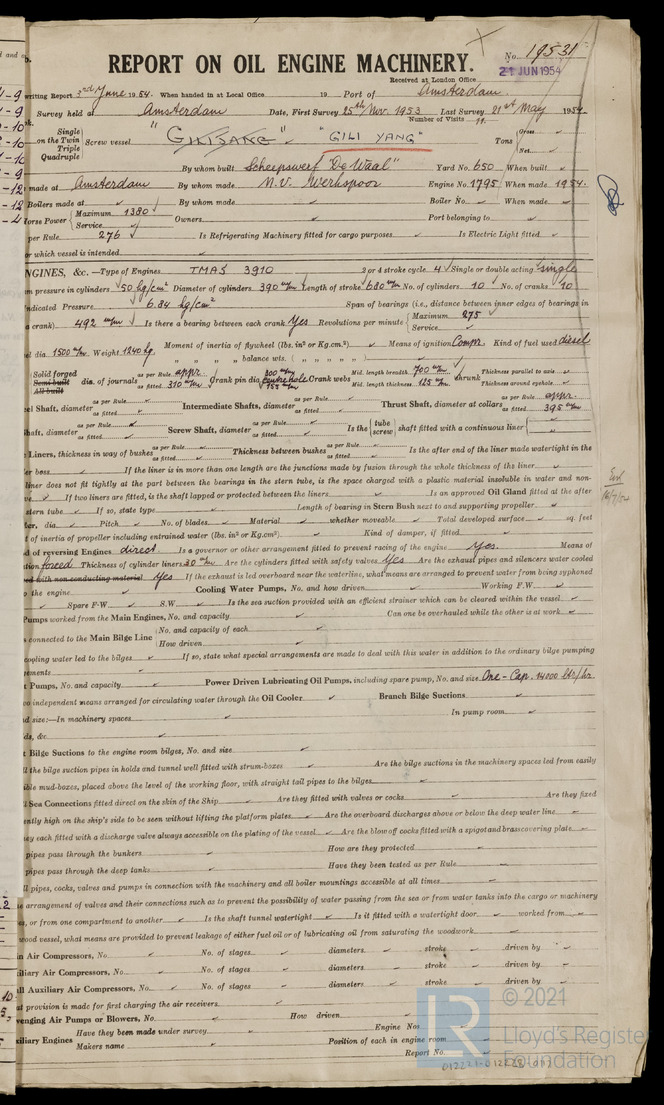 REPORT ON OIL ENGINE MACHINERY.
No. 19531
21 JUN 1954
Received at London Office
writing Report 3rd June 1954. When handed in at Local Office 19 Port of Amsterdam.
Survey held at Amsterdam Date, First Survey 25th Nov. 1953 Last Survey 21st May 1954.
Number of Visits 11.
Single
on the Twin
Triple
Quadruple
Screw vessel "GILISANG" "GILI YANG" Tons Gross
Net
By whom built Scheepswerf "De Waal" Yard No. 650 When built
made at Amsterdam By whom made N.V. Werkspoor Engine No. 1795 When made 1954.
Boilers made at By whom made Boiler No. When made
Horse Power Maximum 1380 Owners Port belonging to
Service
per Rule 276 Is Refrigerating Machinery fitted for cargo purposes Is Electric Light fitted
or which vessel is intended
ENGINES, &c.—Type of Engines TMAS 3910 2 or 4 stroke cycle 4 Single or double acting single
pressure in cylinders 50 kg/cm² Diameter of cylinders 390 m/m Length of stroke 680 m/m No. of cylinders 10 No. of cranks 10
Indicated Pressure 6.84 kg/cm² Span of bearings (i.e., distance between inner edges of bearings in
a crank) 492 m/m Is there a bearing between each crank Yes Revolutions per minute Maximum 275
Service
Moment of inertia of flywheel (lbs. in² or Kg.cm²) Means of ignition Compr. Kind of fuel used diesel
dia 1500 m/m. Weight 1240 kg. " " " balance wts. ( " " " " )
Solid forged
Semi built
All built
dia. of journals as per Rule appr. as fitted 310 m/m Crank pin dia. Crank webs Mid. length breadth 700 m/m Mid. length thickness 125 m/m shrunk Thickness parallel to axis
Thickness around eyehole
Shaft, diameter as per Rule as fitted Intermediate Shafts, diameter as per Rule as fitted Thrust Shaft, diameter at collars as per Rule appr. as fitted 395 m/m
Shaft, diameter as per Rule as fitted Screw Shaft, diameter as per Rule as fitted Is the tube screw shaft fitted with a continuous liner
Liners, thickness in way of bushes as per Rule as fitted Thickness between bushes as per Rule as fitted Is the after end of the liner made watertight in the
boss If the liner is in more than one length are the junctions made by fusion through the whole thickness of the liner
liner does not fit tightly at the part between the bearings in the stern tube, is the space charged with a plastic material insoluble in water and non-
If two liners are fitted, is the shaft lapped or protected between the liners Is an approved Oil Gland fitted at the after
stern tube If so, state type Length of bearing in Stern Bush next to and supporting propeller
dia. Pitch No. of blades Material whether moveable Total developed surface sq. feet
of inertia of propeller including entrained water (lbs. in² or Kg.cm²) Kind of damper, if fitted
of reversing Engines direct Is a governor or other arrangement fitted to prevent racing of the engine Yes. Means of
forced Thickness of cylinder liners 30 m/m Are the cylinders fitted with safety valves Yes Are the exhaust pipes and silencers water cooled
with non-conducting material Yes If the exhaust is led overboard near the waterline, what means are arranged to prevent water from being syphoned
to the engine Cooling Water Pumps, No. and how driven Working F.W.
Spare F.W S.W Is the sea suction provided with an efficient strainer which can be cleared within the vessel
Pumps worked from the Main Engines, No. and capacity Can one be overhauled while the other is at work
connected to the Main Bilge Line No. and capacity of each
How driven
cooling water led to the bilges If so, state what special arrangements are made to deal with this water in addition to the ordinary bilge pumping
Pumps, No. and capacity Power Driven Lubricating Oil Pumps, including spare pump, No. and size One - Cap. 14000 ltr/hr
independent means arranged for circulating water through the Oil Cooler Branch Bilge Suctions
size:—In machinery spaces In pump room
&c.
Bilge Suctions to the engine room bilges, No. and size
the bilge suction pipes in holds and tunnel well fitted with strum-boxes Are the bilge suctions in the machinery spaces led from easily
mud-boxes, placed above the level of the working floor, with straight tail pipes to the bilges
Sea Connections fitted direct on the skin of the Ship Are they fitted with valves or cocks Are they fixed
high on the ship's side to be seen without lifting the platform plates Are the overboard discharges above or below the deep water line
each fitted with a discharge valve always accessible on the plating of the vessel Are the blow off cocks fitted with a spigot and brass covering plate
pipes pass through the bunkers How are they protected
pipes pass through the deep tanks Have they been tested as per Rule
pipes, cocks, valves and pumps in connection with the machinery and all boiler mountings accessible at all times
arrangement of valves and their connections such as to prevent the possibility of water passing from the sea or from water tanks into the cargo or machinery
or from one compartment to another Is the shaft tunnel watertight Is it fitted with a watertight door worked from
wood vessel, what means are provided to prevent leakage of either fuel oil or of lubricating oil from saturating the woodwork
Air Compressors, No. No. of stages diameters stroke driven by
Auxiliary Air Compressors, No. No. of stages diameters stroke driven by
Auxiliary Air Compressors, No. No. of stages diameters stroke driven by
provision is made for first charging the air receivers
Scavenging Air Pumps or Blowers, No. How driven
Auxiliary Engines Have they been made under survey Engine Nos
Makers name Position of each in engine room
Report No.
LR © 2021
Lloyd's Register
Foundation